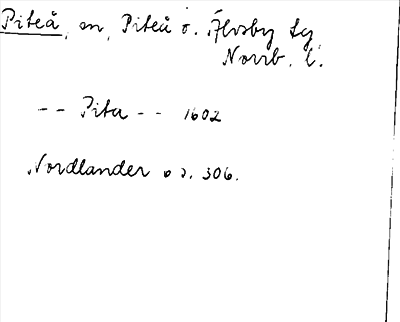 Piteå, sn, Piteå o. Älvsby tg
Norrb. l.
-- Pita -- 1602
Nordlander o s. 306.